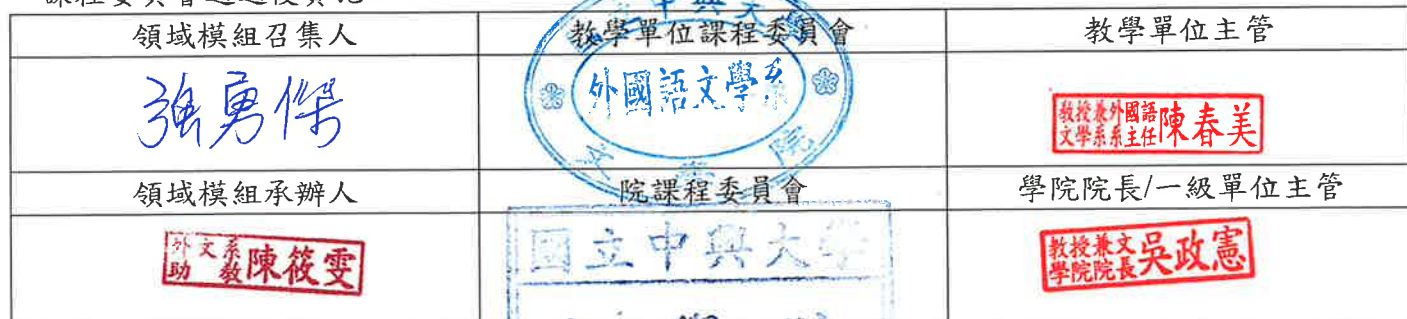 領域模組召集人 教學單位課程委員會 教學單位主管
強勇傑
國立中興大學
外國語文學系
文學院
教授兼外國語
文學系系主任 陳春美
領域模組承辦人 院課程委員會 學院院長/一級單位主管
外文系
助教 陳筱雯
國立中興大學
教授兼文
學院院長 吳政憲